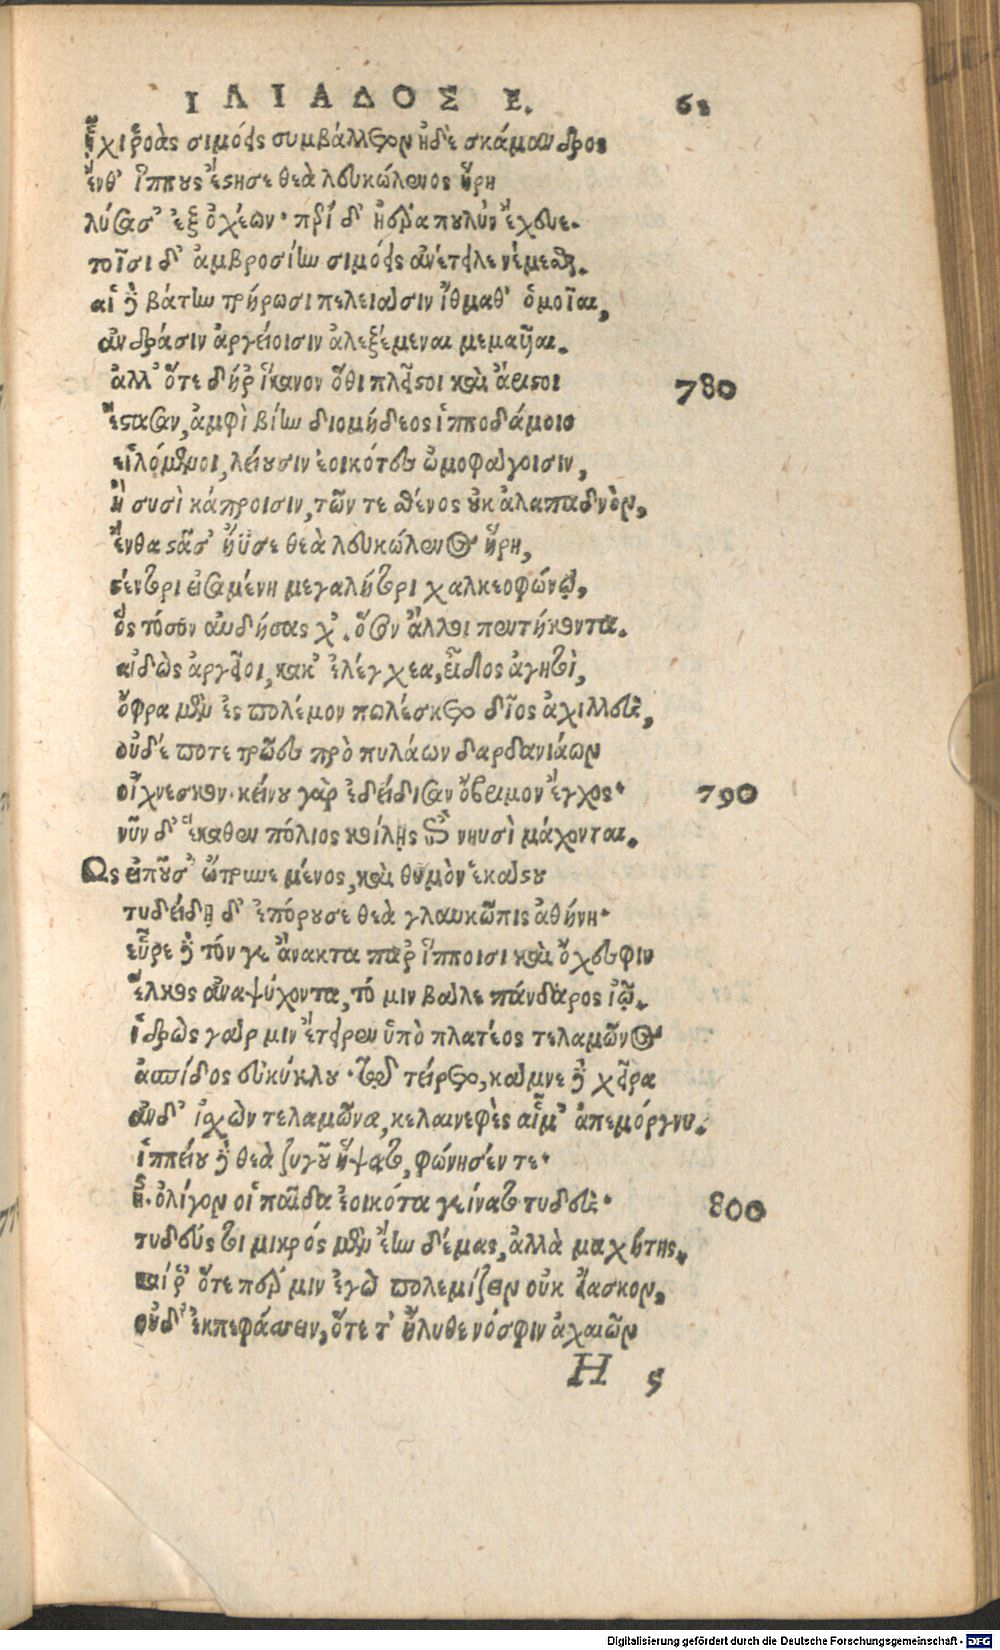 ΙΛΙΑΔΟΣ Ε. 61
ἧχι ῥοὰς σιμόεις συμβάλλετον ἠδὲ σκάμανδρος
ἔνθ' ἵππους ἔστησε θεὰ λευκώλενος ἥρη
λύσασ' ἐξ ὀχέων· περὶ δ' ἠέρα πουλὺν ἔχευε.
τοῖσι δ' ἀμβροσίην σιμόεις ἀνέτειλε νέμεσθαι.
αἱ δὲ βάτην τρήρωσι πελειάσιν ἴθμαθ' ὁμοῖαι,
ἀνδράσιν ἀργείοισιν ἀλεξέμεναι μεμαῦιαι.
ἀλλ' ὅτε δή ῥ' ἵκανον ὅθι πλεῖστοι καὶ ἄριστοι 780
ἕστασαν, ἀμφὶ βίην διομήδεος ἱπποδάμοιο
εἰλόμενοι, λείουσιν ἐοικότες ὠμοφάγοισιν,
ἢ συσὶ κάπροισιν, τῶν τε σθένος οὐκ ἀλαπαδνόν,
ἔνθα στᾶσ' ἤϋσε θεὰ λευκώλενος ἥρη,
στέντορι εἰσαμένη μεγαλήτορι χαλκεοφώνῳ,
ὃς τόσον αὐδήσας χ'. ὅσον ἄλλοι πεντήκοντα.
αἰδὼς ἀργεῖοι, κακ' ἐλέγχεα, εἶδος ἀγητοὶ,
ὄφρα μὲν ἐς πολέμον πωλέσκετο δῖος ἀχιλλεὺς,
οὐδέ ποτε τρῶες πρὸ πυλάων δαρδανιάων
οἴχνεσκον. κείνου γὰρ ἐδείδισαν ὄβριμον ἔγχος· 790
νῦν δ' ἕκαθεν πόλιος κοίλῃς ἐπὶ νηυσὶ μάχονται.
Ως εἰποῦσ' ὤτρυνε μένος, καὶ θυμὸν ἑκάστου
τυδείδῃ δ' ἐπόρουσε θεὰ γλαυκῶπις ἀθήνη·
εὗρε δὲ τόν γε ἄνακτα παρ' ἵπποισι καὶ ὄχεσφιν
ἕλκος ἀναψύχοντα, τό μιν βάλε πάνδαρος ἰῷ.
ἱδρὼς γάρ μιν ἔτειρεν ὑπὸ πλατέος τελαμῶνος
ἀσπίδος εὐκύκλου· τῷ τείρετο, κάμνε δὲ χεῖρα
ἂν δ' ἰσχὼν τελαμῶνα, κελαινεφὲς αἷμ' ἀπεμόργνυ.
ἱππείου δὲ θεὰ ζυγοῦ ἥψατο, φώνησέν τε·
ἦ. ὀλίγον οἱ παῖδα ἐοικότα γείνατο τυδεὺς· 800
τυδεύς τοι μικρός μὲν ἔην δέμας, ἀλλὰ μαχητής.
καί ῥ' ὅτε πέρ μιν ἐγὼ πολεμίζειν οὐκ εἴασκον,
οὐδ' ἐκπεφάσσειν, ὅτε τ' ἤλυθε νόσφιν ἀχαιῶν
H 5
Digitalisierung gefördert durch die Deutsche Forschungsgemeinschaft - DFG